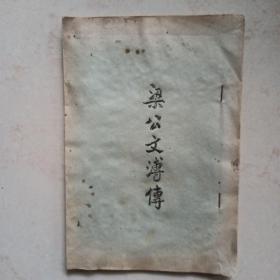 梁公文溥傳